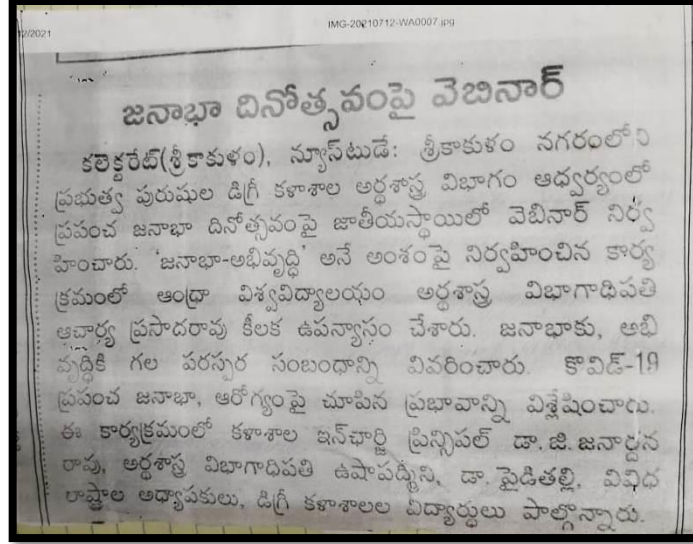 12/2021
IMG-20210712-WA0007.jpg
జనాభా దినోత్సవంపై వెబినార్
కలెక్టరేట్(శ్రీకాకుళం), న్యూస్‌టుడే: శ్రీకాకుళం నగరంలోని
ప్రభుత్వ పురుషుల డిగ్రీ కళాశాల అర్థశాస్త్ర విభాగం ఆధ్వర్యంలో
ప్రపంచ జనాభా దినోత్సవంపై జాతీయస్థాయిలో వెబినార్ నిర్వ
హించారు. 'జనాభా-అభివృద్ధి' అనే అంశంపై నిర్వహించిన కార్య
క్రమంలో ఆంధ్రా విశ్వవిద్యాలయం అర్థశాస్త్ర విభాగాధిపతి
ఆచార్య ప్రసాదరావు కీలక ఉపన్యాసం చేశారు. జనాభాకు, అభి
వృద్ధికి గల పరస్పర సంబంధాన్ని వివరించారు. కొవిడ్-19
ప్రపంచ జనాభా, ఆరోగ్యంపై చూపిన ప్రభావాన్ని విశ్లేషించారు.
ఈ కార్యక్రమంలో కళాశాల ఇన్‌ఛార్జి ప్రిన్సిపల్ డా.జి.జనార్దన
రావు, అర్థశాస్త్ర విభాగాధిపతి ఉషాపద్మిని, డా. పైడితల్లి, వివిధ
రాష్ట్రాల అధ్యాపకులు, డిగ్రీ కళాశాలల విద్యార్థులు పాల్గొన్నారు.